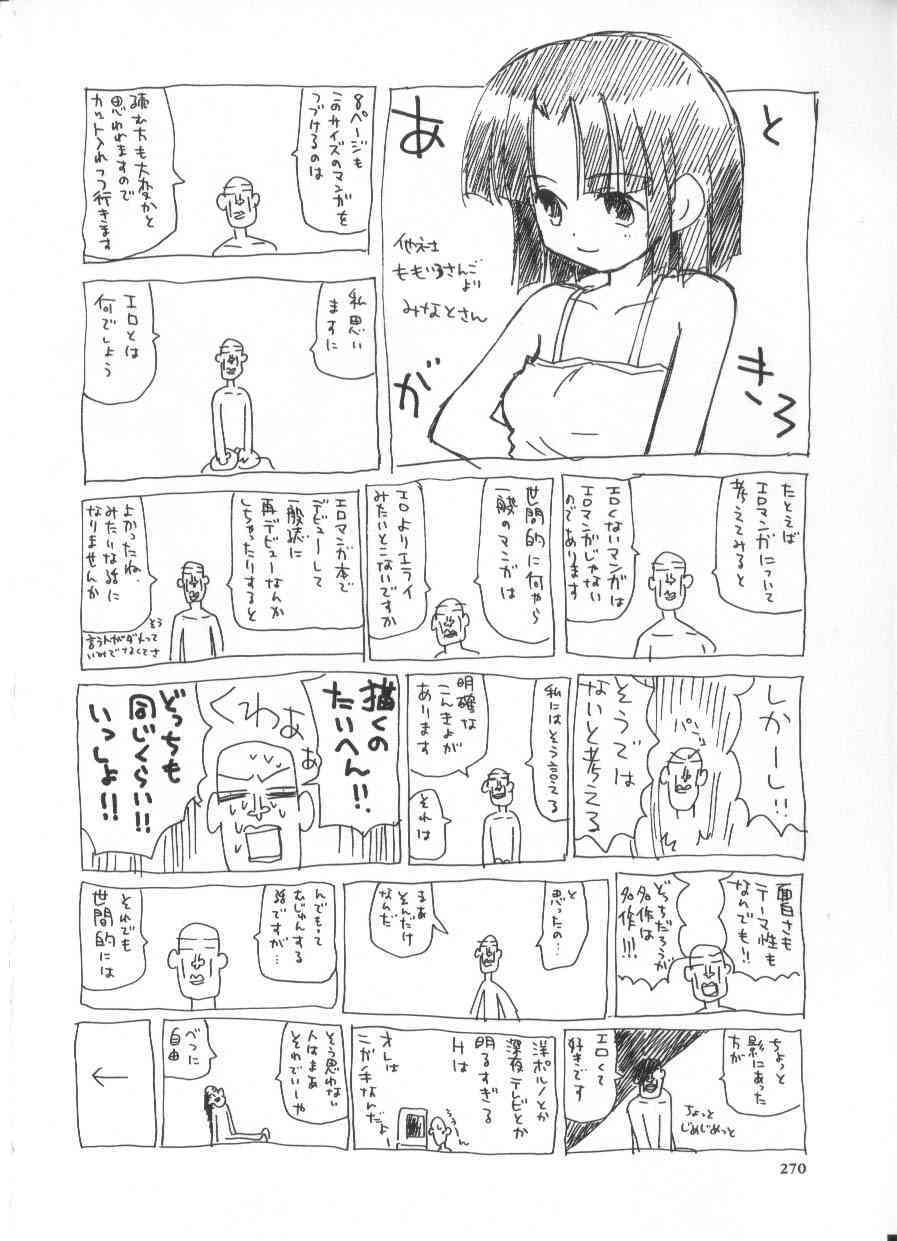 あとがき
他社
ももいろさんごより
みなとさん
8ページも
このサイズのマンガを
つづけるのは
読む方も大変かと
思われますので
カット入れつつ行きます
私思い
ますに
エロとは
何でしょう
たとえば
エロマンガについて
考えてみると
エロくないマンガは
エロマンガじゃない
のであります
世間的に何やら
一般のマンガは
エロよりエライ
みたいなとこないですか
エロマンガ本で
デビューして
一般誌に
再デビューなんか
しちゃったりすると
よかったね、
みたいな話に
なりませんか
そう
言う人がダメって
いみでなくてさ
しかーし!!
そうでは
ないと考える
私にはそう言える
明確な
こんきょが
あります
それは
描くの
たいへん!!
くわぁぁぁ
どっちも
同じくらい!!
いっしょ!!
面白さも
テーマ性も
なんでも!!
どっちだろうが
名作は
名作!!!
と
思ったの…
まあ
そんだけ
なんだ
んでもって
むじゅんする
話ですが…
それでも
世間的には
ちょっと
影にあった
方が
エロくて
好きです
ちょっと
じめじめっと
洋ポルノとか
深夜テレビとか
明るすぎる
Hは
オレは
ニガテなんだよー
ううーん
そう思わない
人はまあ
それでいーや
べつに
自由
←
270